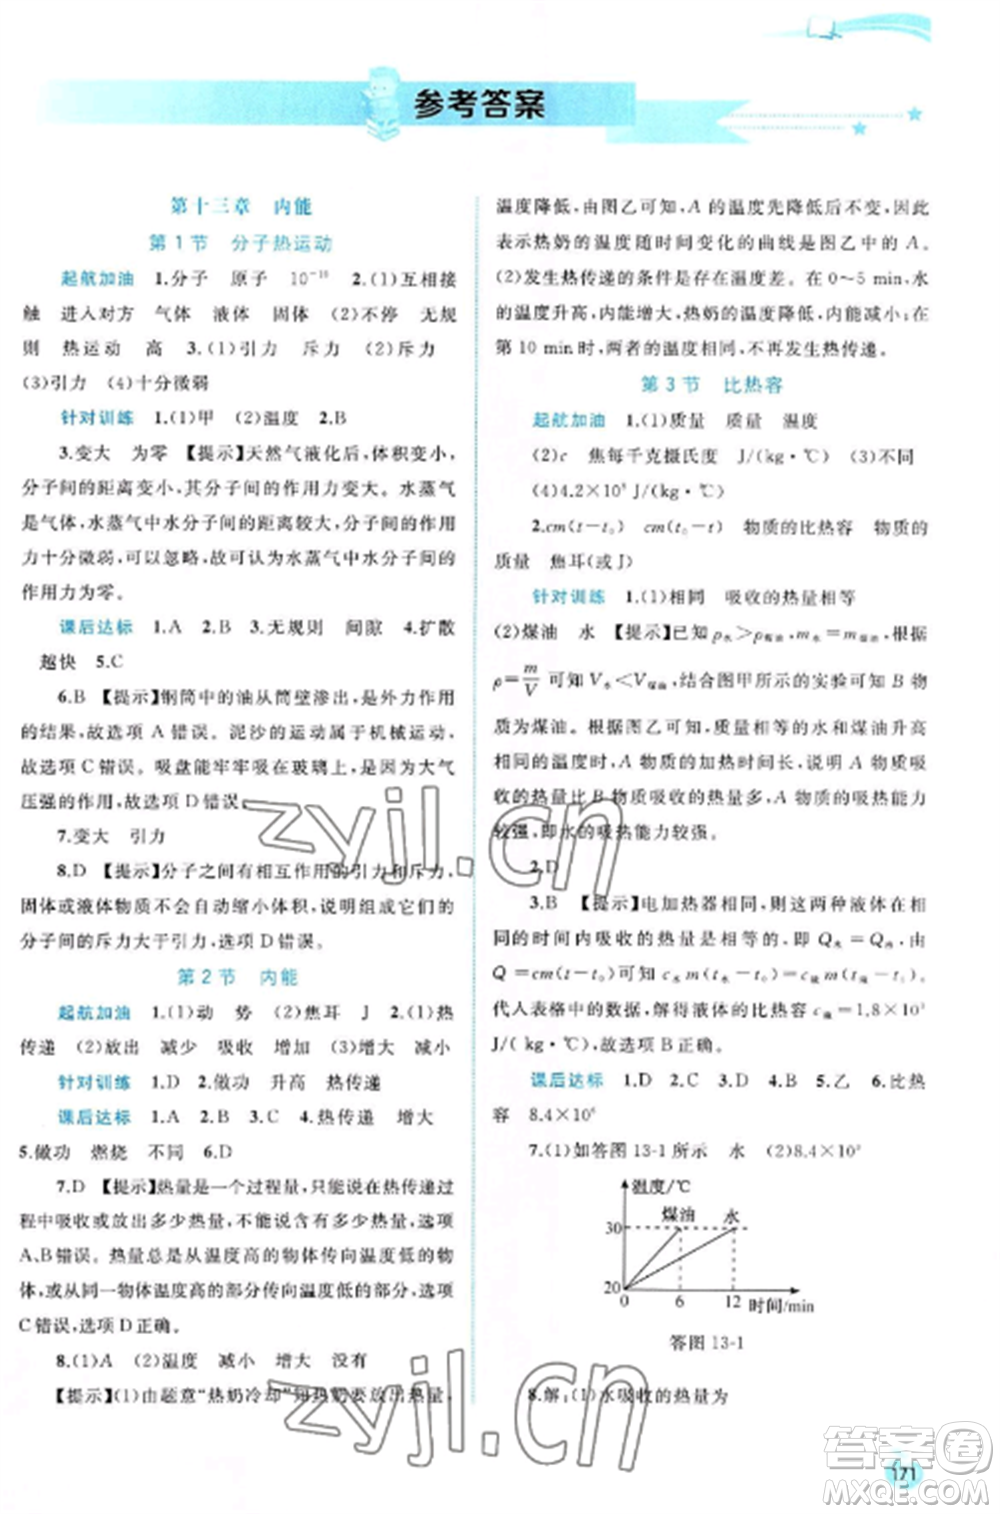 参考答案
第十三章 内能
第1节 分子热运动
起航加油 1.分子 原子 10⁻¹⁰ 2.(1)互相接
触 进入对方 气体 液体 固体 (2)不停 无规
则 热运动 高 3.(1)引力 斥力 (2)斥力
(3)引力 (4)十分微弱
针对训练 1.(1)甲 (2)温度 2.B
3.变大 为零 【提示】天然气液化后,体积变小,
分子间的距离变小,其分子间的作用力变大。水蒸气
是气体,水蒸气中水分子间的距离较大,分子间的作用
力十分微弱,可以忽略,故可认为水蒸气中水分子间的
作用力为零。
课后达标 1.A 2.B 3.无规则 间隙 4.扩散
越快 5.C
6.B 【提示】钢筒中的油从筒壁渗出,是外力作用
的结果,故选项 A 错误。泥沙的运动属于机械运动,
故选项 C 错误。吸盘能牢牢吸在玻璃上,是因为大气
压强的作用,故选项 D 错误。
7.变大 引力
8.D 【提示】分子之间有相互作用的引力和斥力,
固体或液体物质不会自动缩小体积,说明组成物质的
分子间的斥力大于引力,选项 D 错误。
第2节 内能
起航加油 1.(1)动 势 (2)焦耳 J 2.(1)热
传递 (2)放出 减少 吸收 增加 (3)增大 减小
针对训练 1.D 2.做功 升高 热传递
课后达标 1.A 2.B 3.C 4.热传递 增大
5.做功 燃烧 不同 6.D
7.D 【提示】热量是一个过程量,只能说在热传递过
程中吸收或放出多少热量,不能说含有多少热量,选项
A、B错误。热量总是从温度高的物体传向温度低的物
体,或从同一物体温度高的部分传向温度低的部分,选项
C错误,选项 D正确。
8.(1)A (2)温度 减小 增大 没有
【提示】(1)由题意“热奶冷却”知热奶要放出热量,
温度降低,由图乙可知,A 的温度先降低后不变,故
表示热奶的温度随时间变化的曲线是图乙中的 A。
(2)发生热传递的条件是存在温度差。在 0～5 min,水
的温度升高,内能增大,热奶的温度降低,内能减小;在
第 10 min 时,两者的温度相同,不再发生热传递。
第3节 比热容
起航加油 1.(1)质量 质量 温度
(2)c 焦每千克摄氏度 J/(kg·℃) (3)不同
(4)4.2×10³ J/(kg·℃)
2.cm(t－t₀) cm(t₀－t) 物质的比热容 物质的
质量 焦耳(或 J)
针对训练 1.(1)相同 吸收的热量相等
(2)煤油 水 【提示】已知 ρ水＞ρ煤油,m水＝m煤油,根据
ρ＝m/V 可知 V水＜V煤油,结合图甲所示的实验可知 B 物
质为煤油。根据图乙可知,质量相等的水和煤油升高
相同的温度时,A 物质的加热时间长,说明 A 物质吸
收的热量比 B 物质吸收的热量多,A 物质的吸热能力
较强,即水的吸热能力较强。
2.D
3.B 【提示】电加热器相同,则这两种液体在相
同的时间内吸收的热量是相同的,即 Q水＝Q液,由
Q＝cm(t－t₀)得 c水m(t水－t₀)＝c液m(t液－t₀),
代人表格中的数据,解得液体的比热容 c液＝1.8×10³
J/(kg·℃),故选项 B 正确。
课后达标 1.D 2.C 3.D 4.B 5.乙 6.比热
容 8.4×10⁶
7.(1)如答图 13-1 所示 水 (2)8.4×10³
温度/℃
煤油 水
30
20
0 6 12 时间/min
答图 13-1
8.解:(1)水吸收的热量为
171
zyjl.cn
zyjl.cn
答案圈
MXQE.COM